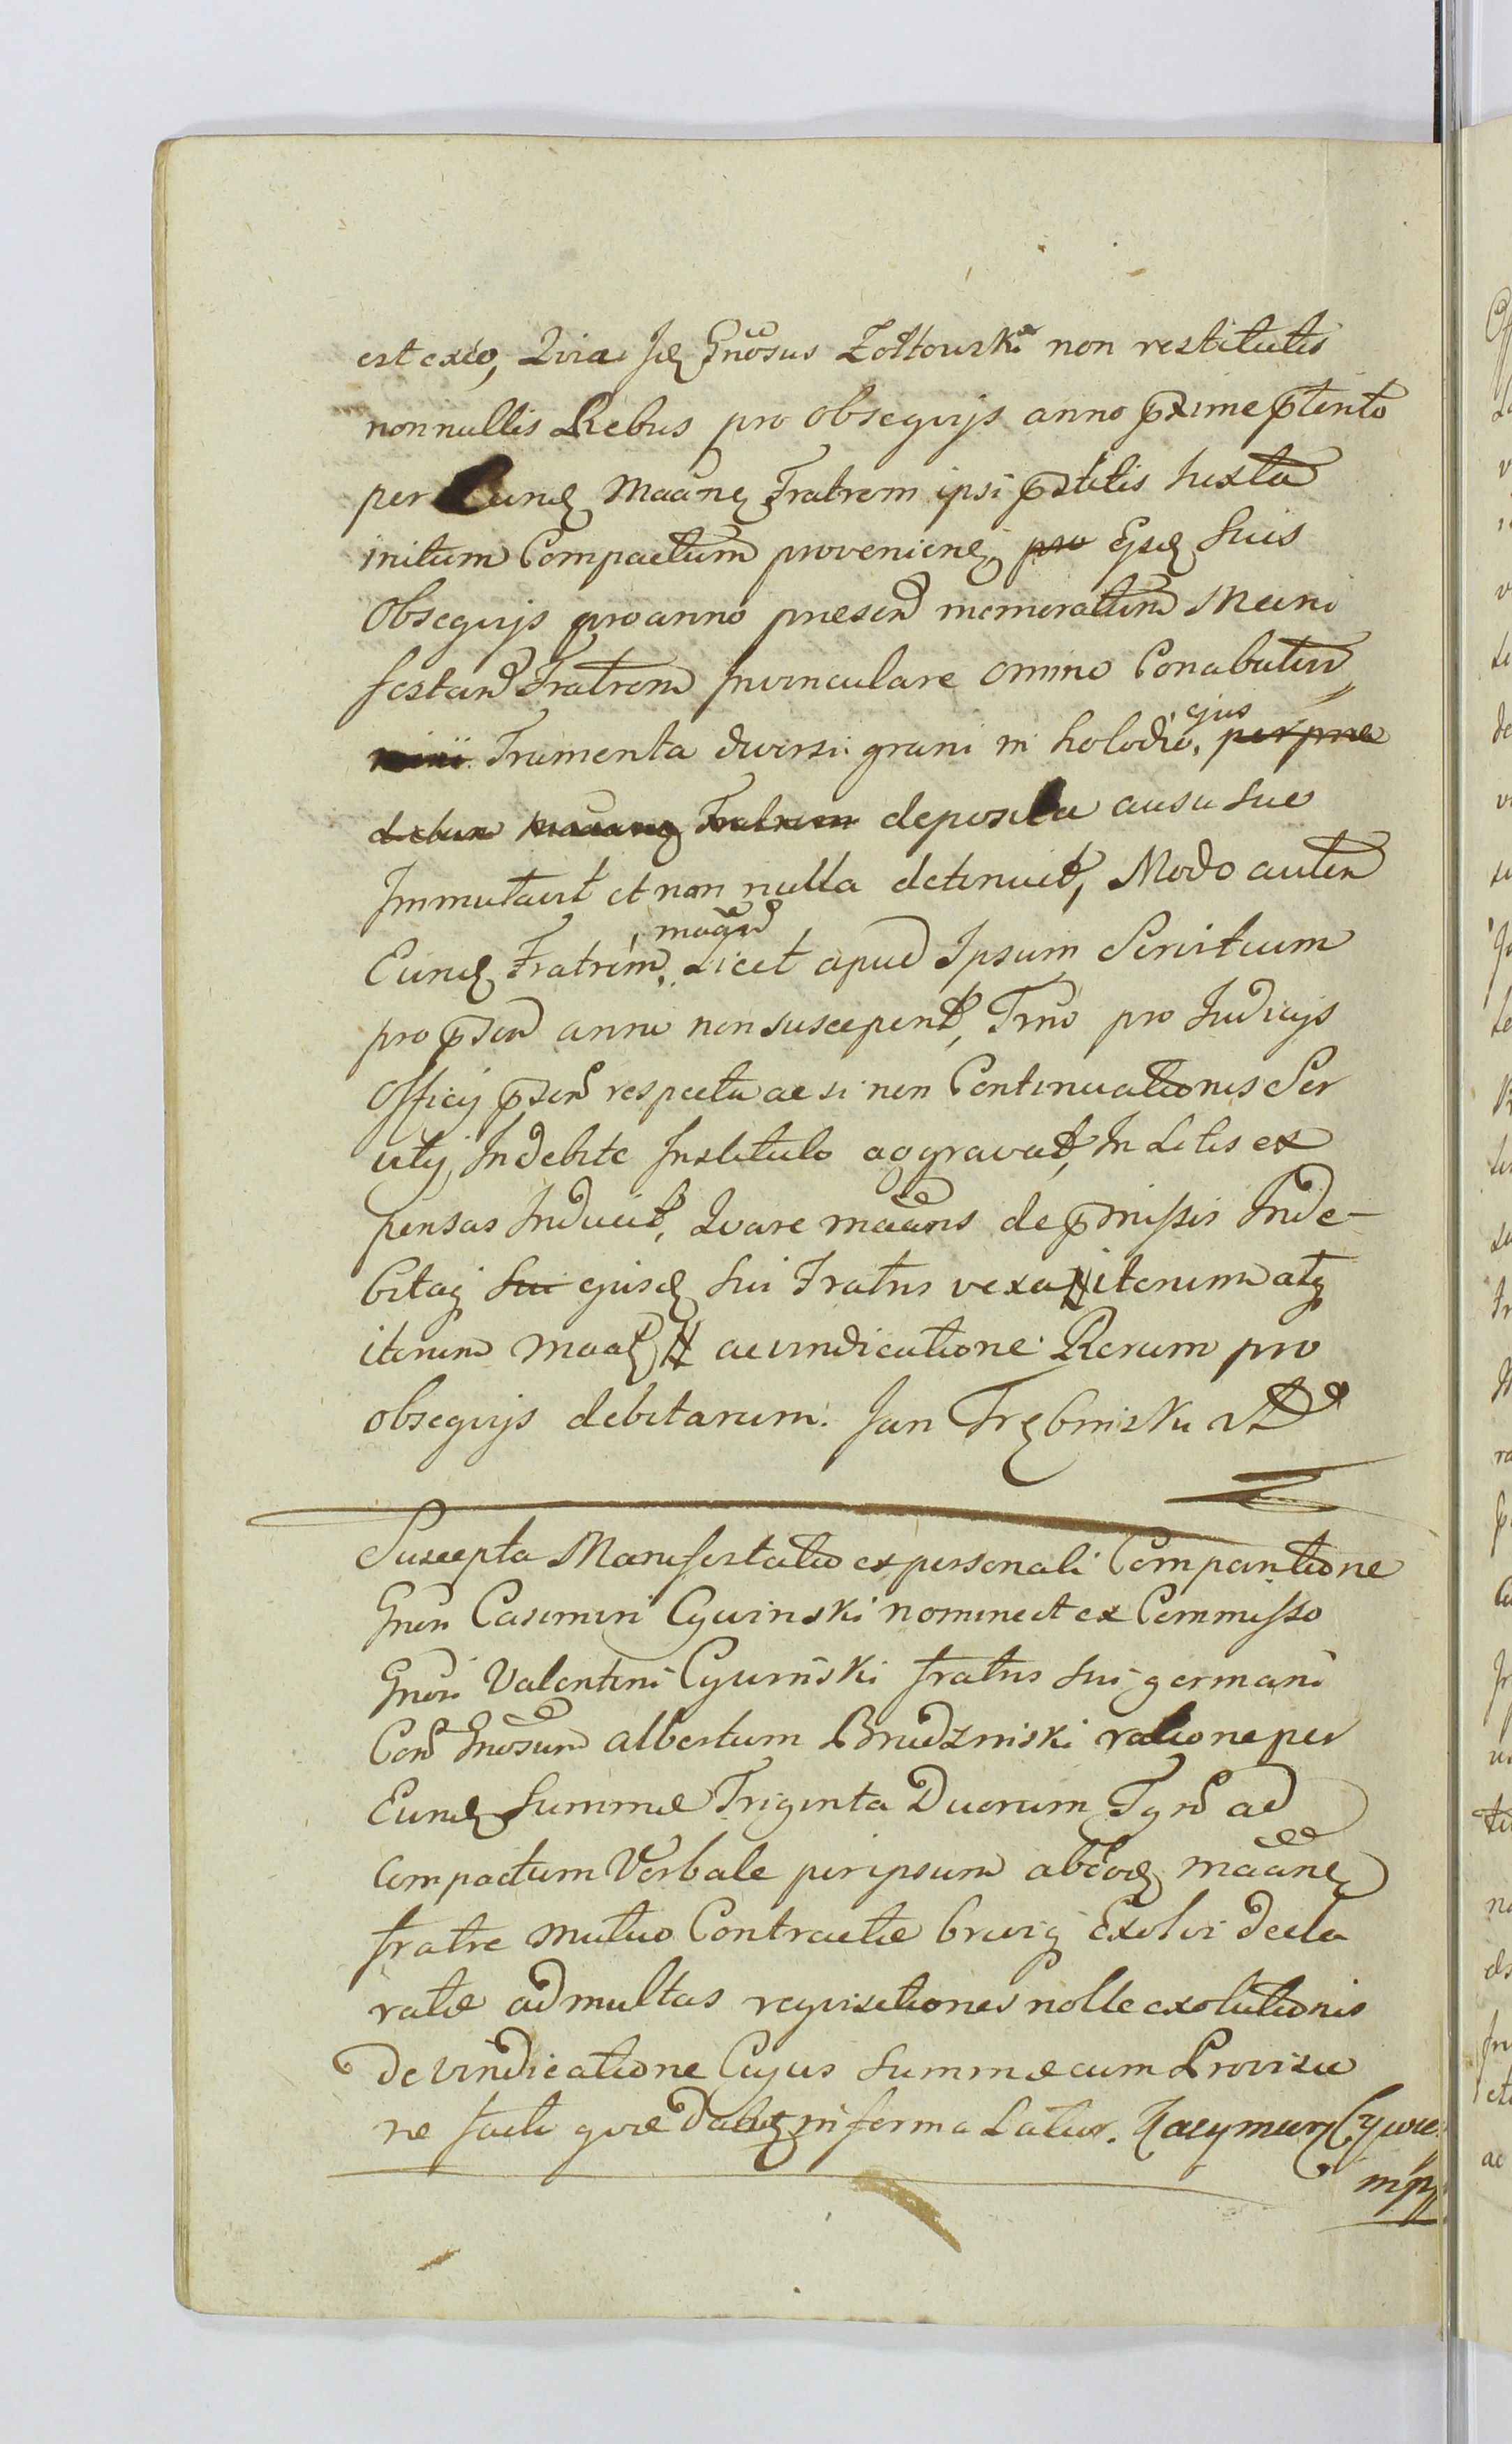 est ex eo, Quia Jd Gnosus Zołtowski non restitutis
nonnullis Rebus pro obsequijs anno pxime ptento
per Eund Maane Fratrem ipsi pstitis Iuxta
initum Compactum provenien pro Ejsd suis
Obsequijs pro anno praesen memoratum Mani
festan Fratrem invinculare omino Conabatur
Frumenta diversi grani in holodio, ejus per prae
dictum Maanem Fratrem deposita ausu suo
Immutavit et non nulla detinuit, Modo autem
Eund Fratrem, maaem Licet apud Ipsum Servitium
pro psen anno non susceperit, Trno pro Judicijs
Officij psen respectu ac si non Continuationis Ser
vitij Indebite Instituto aggravat, In Litis ex
pensas Inducit, Quare maans de pmissis Inde-
bitaq sui ejusd sui Fratris vexa N iterum atq
iterum maat N ac vindicatione Rerum pro
obsequijs debitarum. Jan Trębinski
Suscepta Manifestatio ex personali Comparitione
Gnosi Casimiri Cywinski nomine et ex Commisso
Gnosi Valentini Cywinski fratris sui germani
Con Gnosum Albertum Brudzinski ratione per
Eund Summae Triginta Duorum Tyn ad
Compactum Verbale per ipsum ab eod maane
fratre mutuo Contractae breviq Exolvi decla
ratae ad multas requisitiones nolle exolutionis
De vindicatione Cujus Summae cum Provisio
ne facti quae Dabit in forma Latior. Kazymierz Cywi
mp